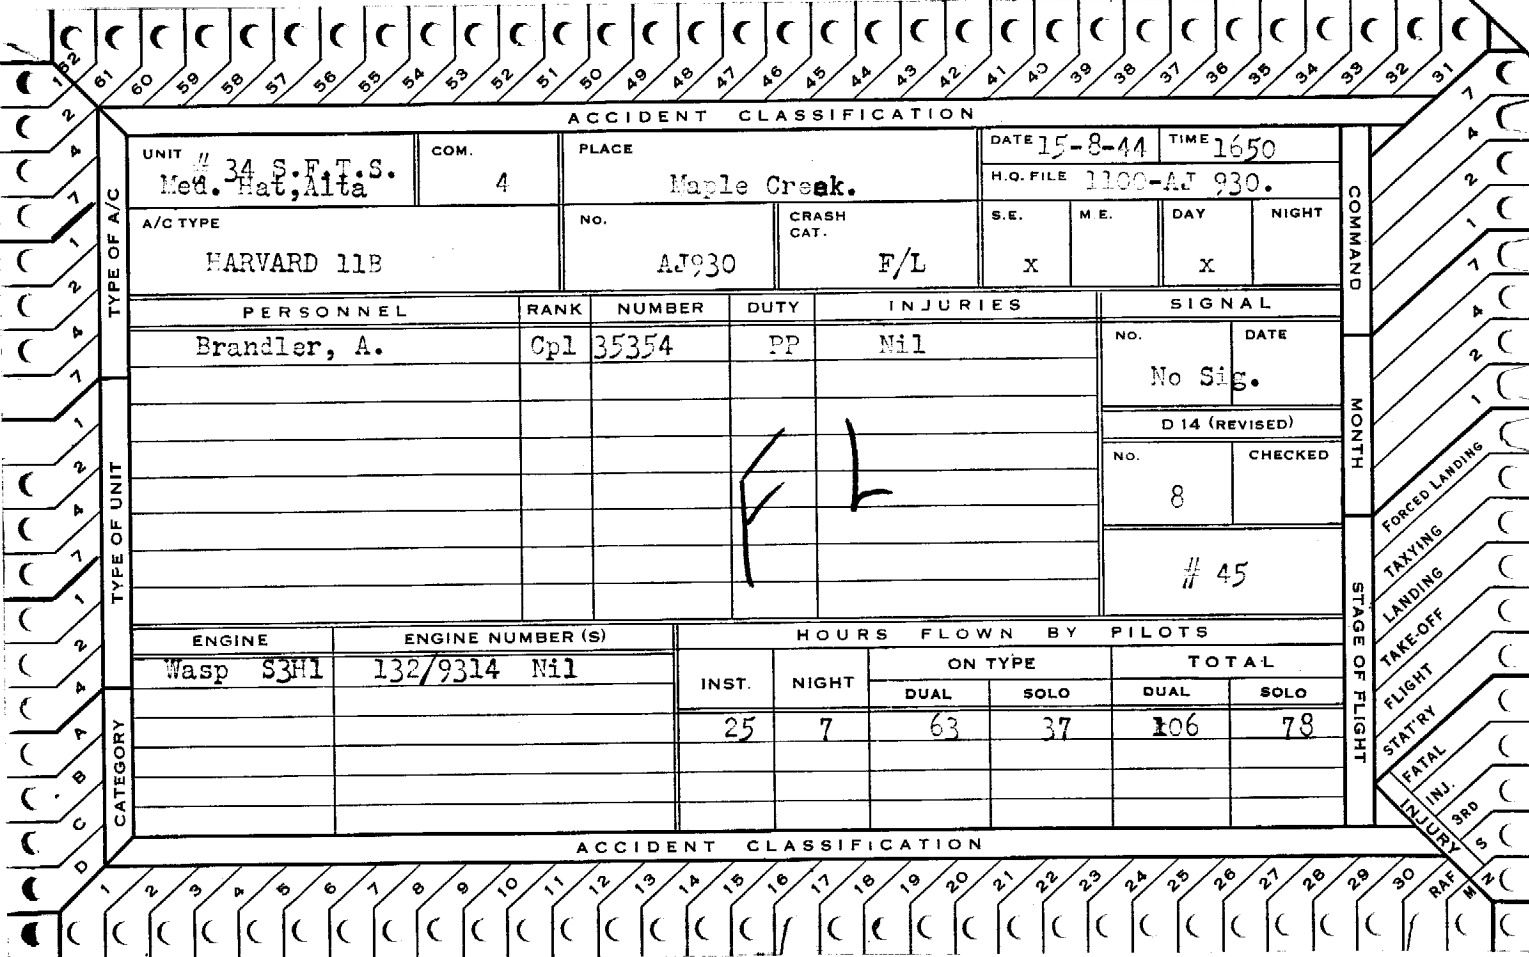 62 61 60 59 58 57 56 55 54 53 52 51 50 49 48 47 46 45 44 43 42 41 40 39 38 37 36 35 34 33 32 31
ACCIDENT CLASSIFICATION
UNIT # 34 S.F.T.S.
Med. Hat,Alta
COM.
4
PLACE
Maple Creek.
DATE 15-8-44
TIME 1650
H.Q. FILE 1100-AJ 930.
A/C TYPE
HARVARD 11B
NO.
AJ930
CRASH
CAT.
F/L
S.E.
x
M.E.
DAY
x
NIGHT
PERSONNEL RANK NUMBER DUTY INJURIES
Brandler, A. Cpl 35354 PP Nil
SIGNAL
NO. DATE
No Sig.
D 14 (REVISED)
NO. CHECKED
8
# 45
F L
ENGINE ENGINE NUMBER (S)
Wasp S3H1 132/9314 Nil
HOURS FLOWN BY PILOTS
INST. NIGHT ON TYPE TOTAL
DUAL SOLO DUAL SOLO
25 7 63 37 106 78
ACCIDENT CLASSIFICATION
1 2 3 4 5 6 7 8 9 10 11 12 13 14 15 16 17 18 19 20 21 22 23 24 25 26 27 28 29 30 RAF M N
TYPE OF A/C
TYPE OF UNIT
CATEGORY
1 2 4 7 1 2 4 7 1 2 4 7 1 2 4 A B C D
COMMAND
MONTH
STAGE OF FLIGHT
7 4 2 1 7 4 2 1
FORCED LANDING
TAXYING
LANDING
TAKE-OFF
FLIGHT
STAT'RY
FATAL
INJ.
3RD
S
INJURY